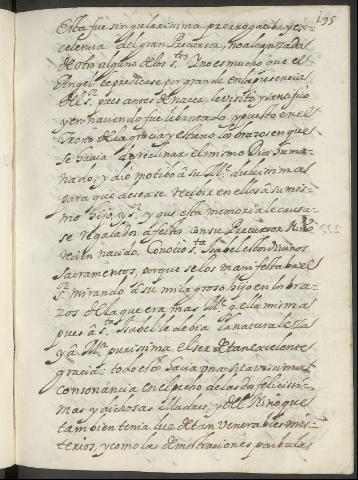 195
Esta fue singularissima prerrogatiba y ex-
celencia del gran Precursor, no alcanzada
de otro alguno de los s.tos I no es mucho que el
Angel le predicase por grande en la presencia
del S.r pues antes de nacer, le visitó, y santificó
y en naciendo fue lebantado, y puesto en el
trono de la gracia, y estrenó los brazos en que
se havia de reclinar el mismo Dios huma-
nado; y dió motibo a su M.e dulcissima
para que desease recibir en ellos à su mis-
mo hijo, y S.r y que esta memoria le causa-
se regalados afectos con su Precursor Niño
recien nacido. Conoció s.ta Isabel estos divinos
sacramentos, porque se los manifestaba el
S.r mirando à su milagroso hijo en los bra-
zos de la que era mas M.e q ella misma
pues à s.ta Isabel le debia la naturaleza
y à M.a purissima el ser de tan excelente
gracia: todo esto hacia una suavissima
consonancia en el pecho de las dos felicissi-
mas y dichosas Madres, y del Niño que
tambien tenia luz de tan venerables mis-
terios, y como las demostraciones parbulas